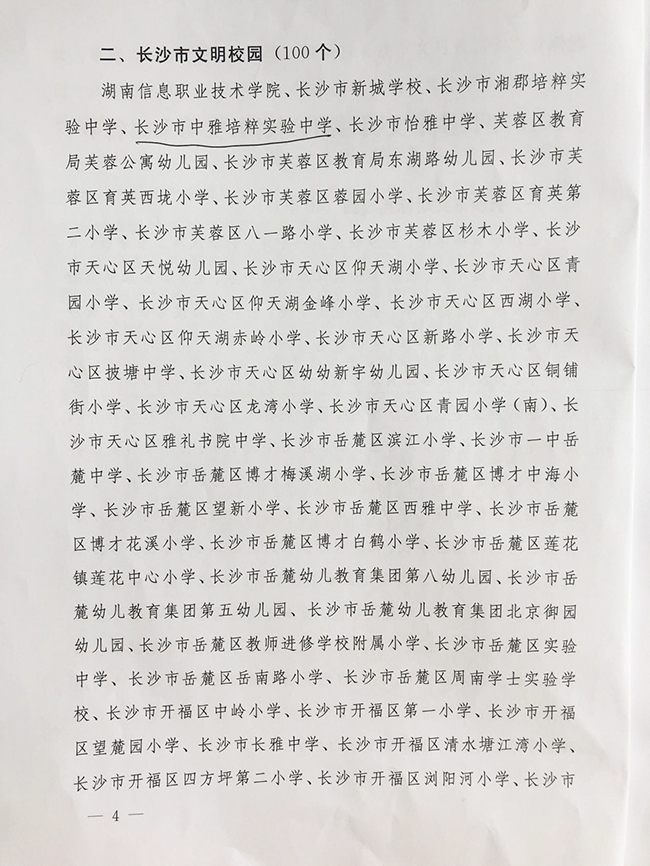 二、长沙市文明校园（100个）
湖南信息职业技术学院、长沙市新城学校、长沙市湘郡培粹实
验中学、长沙市中雅培粹实验中学、长沙市怡雅中学、芙蓉区教育
局芙蓉公寓幼儿园、长沙市芙蓉区教育局东湖路幼儿园、长沙市芙
蓉区育英西垅小学、长沙市芙蓉区蓉园小学、长沙市芙蓉区育英第
二小学、长沙市芙蓉区八一路小学、长沙市芙蓉区杉木小学、长沙
市天心区天悦幼儿园、长沙市天心区仰天湖小学、长沙市天心区青
园小学、长沙市天心区仰天湖金峰小学、长沙市天心区西湖小学、
长沙市天心区仰天湖赤岭小学、长沙市天心区新路小学、长沙市天
心区披塘中学、长沙市天心区幼幼新宇幼儿园、长沙市天心区铜铺
街小学、长沙市天心区龙湾小学、长沙市天心区青园小学（南）、长
沙市天心区雅礼书院中学、长沙市岳麓区滨江小学、长沙市一中岳
麓中学、长沙市岳麓区博才梅溪湖小学、长沙市岳麓区博才中海小
学、长沙市岳麓区望新小学、长沙市岳麓区西雅中学、长沙市岳麓
区博才花溪小学、长沙市岳麓区博才白鹤小学、长沙市岳麓区莲花
镇莲花中心小学、长沙市岳麓幼儿教育集团第八幼儿园、长沙市岳
麓幼儿教育集团第五幼儿园、长沙市岳麓幼儿教育集团北京御园
幼儿园、长沙市岳麓区教师进修学校附属小学、长沙市岳麓区实验
中学、长沙市岳麓区岳南路小学、长沙市岳麓区周南学士实验学
校、长沙市开福区中岭小学、长沙市开福区第一小学、长沙市开福
区望麓园小学、长沙市长雅中学、长沙市开福区清水塘江湾小学、
长沙市开福区四方坪第二小学、长沙市开福区浏阳河小学、长沙市
— 4 —